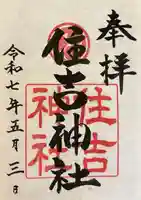 奉拝
住吉神社
住吉神社
令和七年五月三日